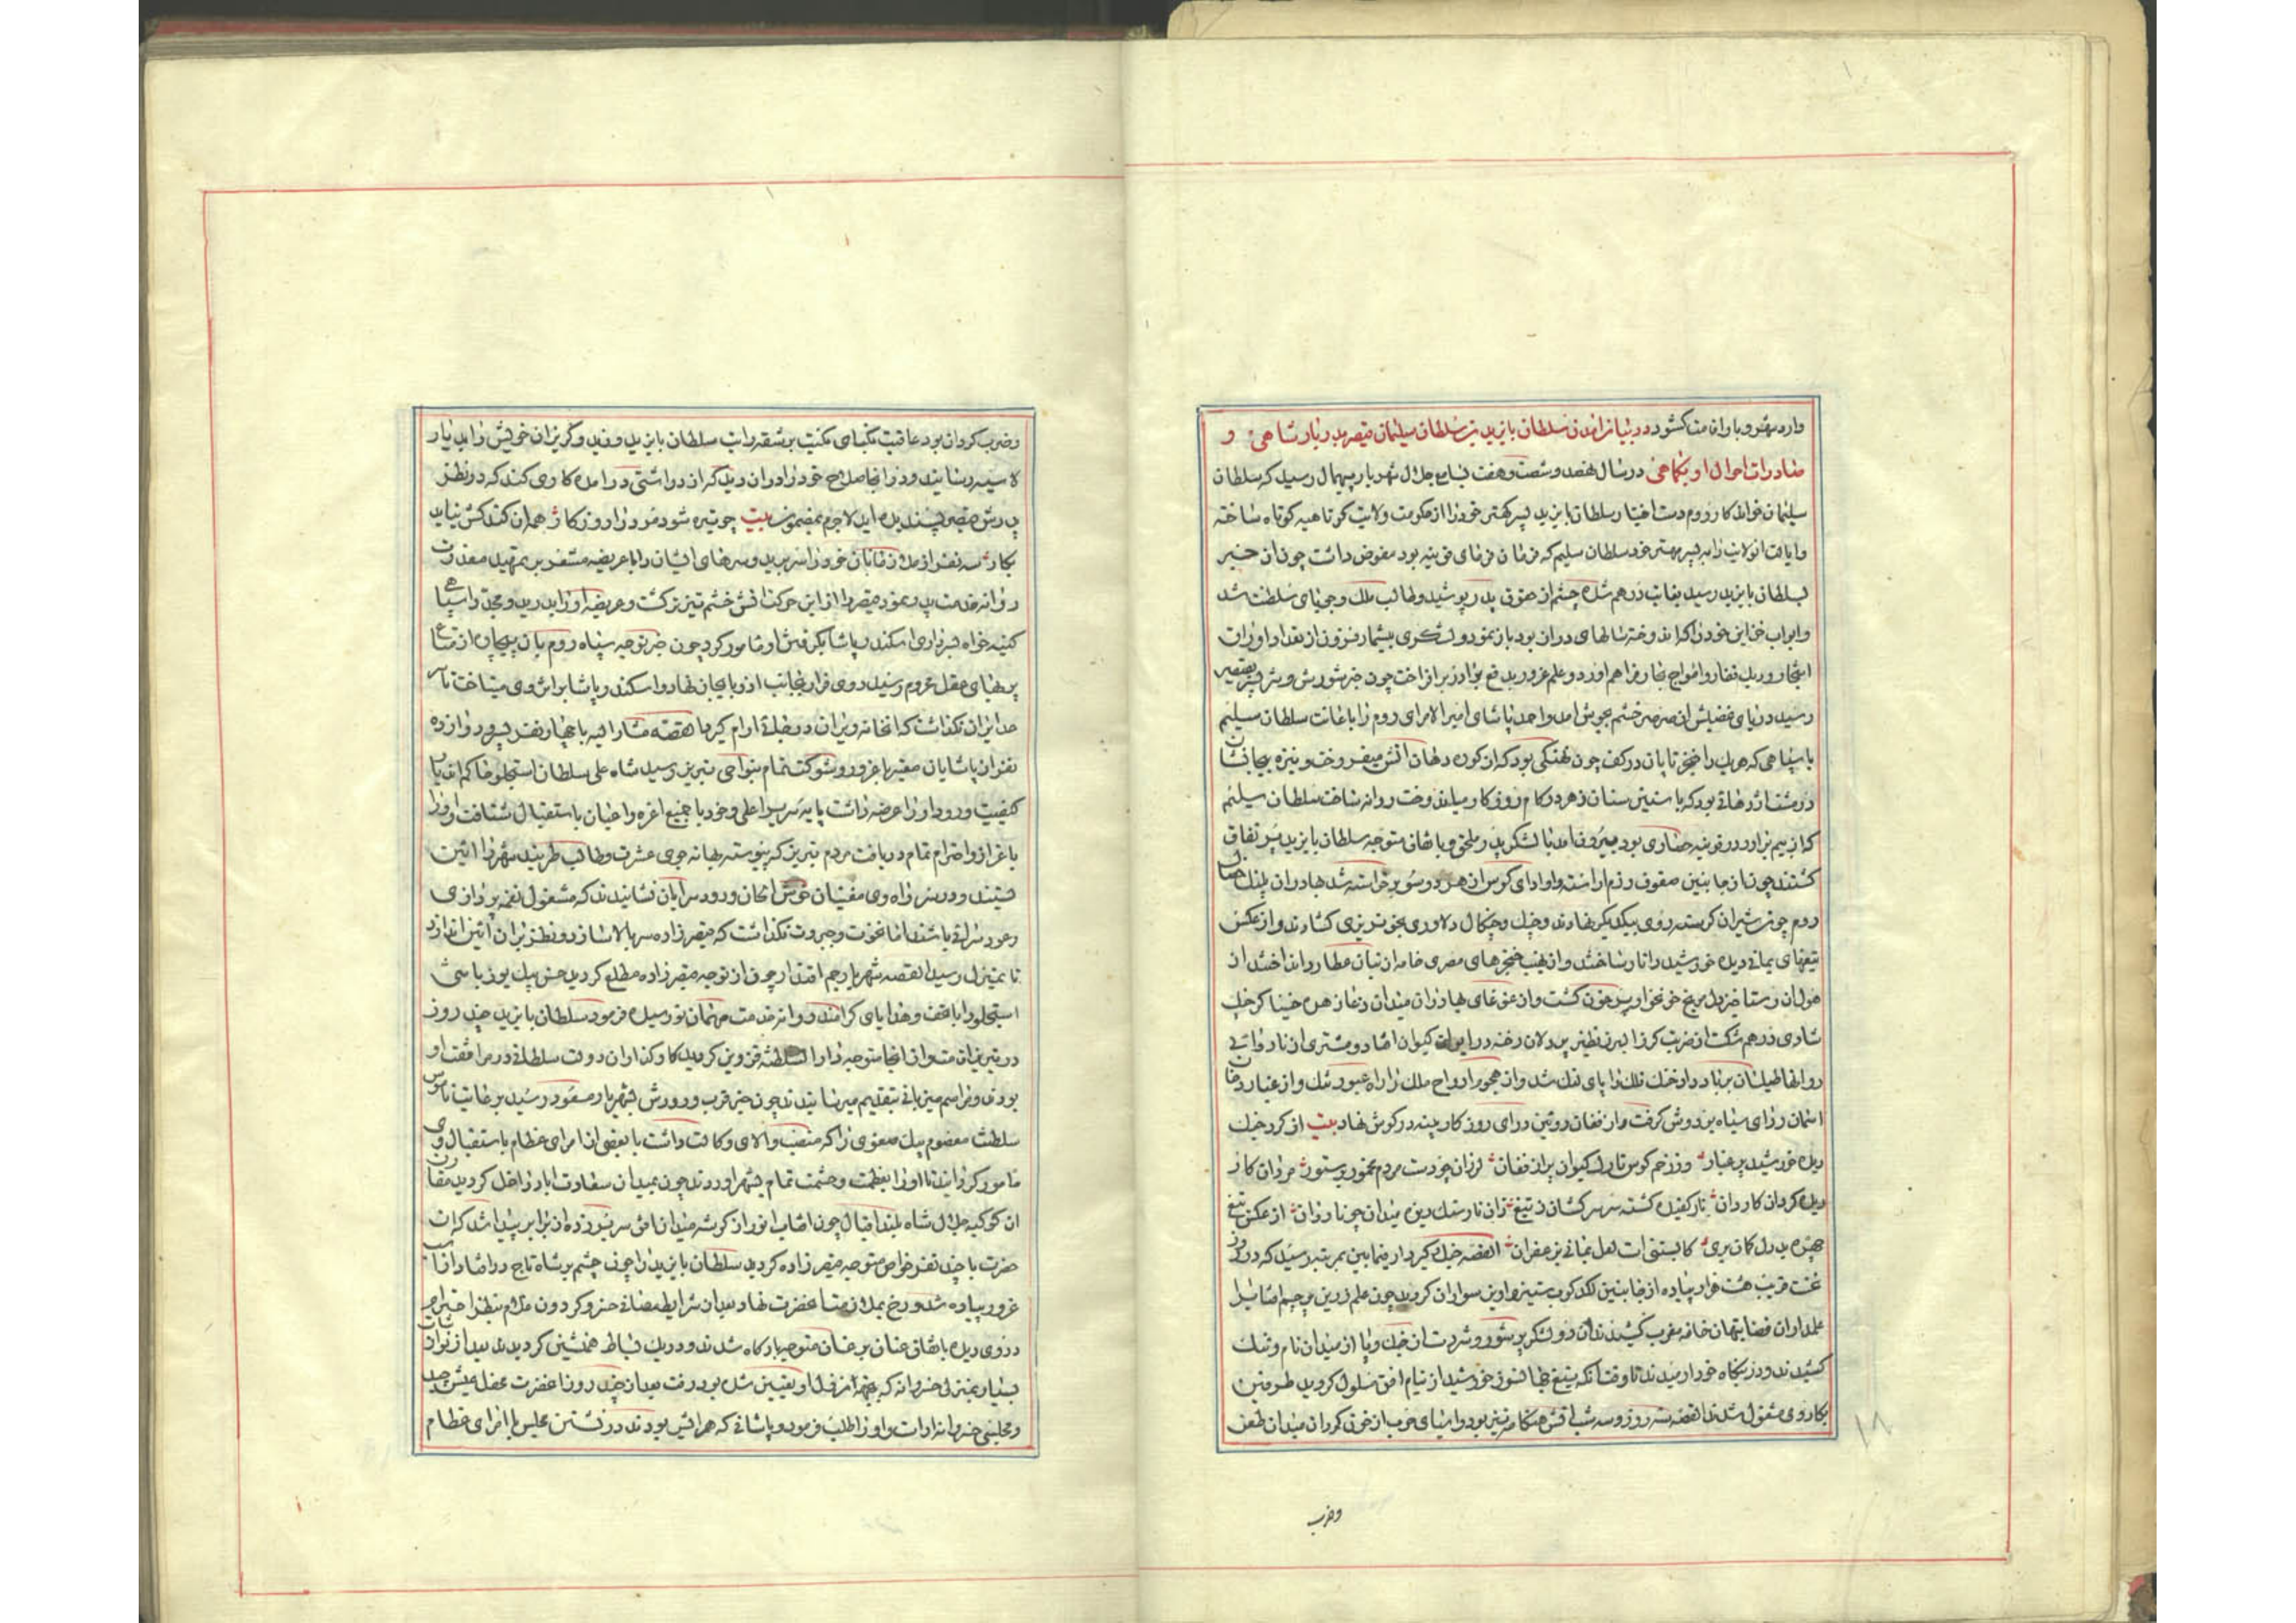 وارد شهر و باران مت کشود در بیان امدن سلطان بایزید بن سلطان سلیمان قیصر بدربار شاهی و
صادرات احوال او بکماهی در سال نهصد و شصت و هفت بسامع جلال شهریار بیهمال رسید که سلطان
سلیمان خواندکار روم دست اختیار سلطان بایزید پسر کهتر خود را از حکومت ولایت کوتاهیه کوتاه ساخته
و ایالت انولایت را به پسر مهتر خود سلطان سلیم که فرمان فرمای قونیه بود مفوض داشت چون ان خبر
بسلطان بایزید رسید بغایت درهم شده چشم از حقوق پدر پوشید و طالب ملک و جویای سلطنت شد
و ابواب خزاین خود را که اندوخته سالهای دران بود باز نمود و لشکری بیشمار فزون از تعداد اوراق
اشجار و ریک قفار و امواج بحار فراهم اورد و علم غرور بدفع برادر برافراخت چون خبر شورش و شر پسر بقیصر
رسید دریای غضبش از صرصر خشم بجوش امد و احمد پاشای امیر الامرای روم را باعانت سلطان سلیم
با سپاهی که هر یک را خنجر تابان در کف چون نهنکی بود که از کوره دهان اتش میفروخت و نیزه جانستان
در مشت اژدهائی بود که با نیش سنان زهر در کام روزکار میاندوخت روانه ساخت سلطان سلیم
که از بیم برادر در قونیه حصاری بود بیرون امد با لشکر پدر ملحق و باتفاق متوجه سلطان بایزید پر نفاق
کشتند چون از جانبین صفوف رزم اراسته و اوای کوس از هر دو سو برخاسته شد بهادران پلنک خصال
روم چون شیران کرسنه روی بیکدیکر نهادند و جنک و چنکال دلاوری بخونریزی کشادند و از عکس
تیغهای یمانی دیده خورشید را تار ساختند و از نهیب خنجرهای مصری خامه از بنان عطارد انداختند از
هول ان رستاخیز دل مریخ خونخوار پر خون کشت و از غوغای بهادران میدان دغا زهره خنیاکر چنک
شادی درهم شکست از ضربت کرز البرز نظیر پردلان رخنه در ایوان کیوان افتاد و مشتری از ناروائی
ردا و طیلسان بر باد داد خنک فلک را پای لنک شد و از هجوم ارواح ملک را راه عبور تنک و از غبار دخان
اسمان ردای سیاه بر دوش کرفت و از فغان روئین درای روزکار پنبه در کوش نهاد بیت از کرد خنک
دیده خورشید پر غبار وز زخم کوس تارک کیوان پر از فغان لرزان چو دست مردم مخمور بر ستور مردان کار
دیده کردان کاردان نارکفیده کشته سر سرکشان ز تیغ زان نار سنک ریزه میدان چو ناردان از عکس تیغ
چهره بددل کمان بری کابستنی است لعل یمانی بزعفران القصه جنک کیر و دار فیما بین بمرتبه رسید که در روز
نخست قریب هشت هزار پیاده از جانبین لکدکوب ستیز و اویز سواران کردید چون علم زرین پرچم افتاب را
علمداران قضا بنهان خانه مغرب کشیدند ان دو لشکر پر شور و شر دست از جنک و پا از میدان نام و ننک
کشیدند و در بنکاه خود ارمیدند تا وقتا که تیغ جهانسوز خورشید از نیام افق مسلول کردید طرفین
بکاروی مشغول شدند القصه سه روز و سه شب اتش هنکامه تیز بود و اسیای حرب از خون کردان میدان طعن
وضرب
و ضرب کردان بود عاقبت نکبای نکبت بر شقه رایت سلطان بایزید وزید و کریزان خویش را بدیار
لاسیه رسانید و در انجا صلاح خود را در ان دید که از در اشتی در امده کاری کند که در نظر
پدرش قیصر پسندیده اید لاجرم بمضمون بیت چو تیره شود مرد را روزکار همه ان کند کش نیاید
بکار سه نفر از ملازمان خود را سر برید و سرهای ایشان را با عریضه مشعر بر تمهید معذرت
روانه خدمت پدر نمود قیصر را از این حرکت اتش خشم تیزتر کشت و عریضه او را بدرید و مجددا سپاهی
کینه خواه بسرداری اسکندر پاشا بکرفتن او مامور کرد چون خبر توجه سپاه روم بان بیچاره از متاع
برنهای عقل محروم رسید روی فرار بجانب اذربایجان نهاد و اسکندر پاشا بر اثر وی میتاخت تا سر
حد ایران نکذاشت که انخانه ویران در محلی ارام کیرد القصه مشارالیه با چهار نفر پسر و دوازده
نفر از پاشایان صغیر با غرور و شوکت تمام بنواحی تبریز رسید شاه علی سلطان استجلو حاکم اندیار
کیفیت ورود او را عرضه داشت پایه سریر اعلی و خود با جمیع اعزه و اعیان باستقبال شتافت او را
باعزاز و احترام تمام دریافت مردم تبریز که پیوسته بهانه جوی عشرت و طالب طربند شهر را ائین
بستند و در سر راه وی مغنیان خوش الحان و رود سرایان نشانیدند که مشغول نغمه پردازی
و عود سرائی باشند اما نخوت و جبروت نکذاشت که قیصر زاده سر بالا سازد و نظر بران ائین اندازد
تا بمنزل رسید القصه شهریار جم اقتدار چون از توجه قیصر زاده مطلع کردید حسن بیک یوزباشی
استجلو را با تحف و هدایای کرامند روانه خدمت مهمان نو رسیده فرمود سلطان بایزید چند روز
در تبریز اقامت و از انجا متوجه دارالسلطنه قزوین کردید کارکذاران دولت سلطانی در مرافقت او
بودند و مراسم میزبانی بتقدیم میرسانیدند چون خبر قرب ورودش بشهریار مسعود رسید برعایت ناموس
سلطنت معصوم بیک صفوی را که منصب والای وکالت داشت با بعضی از امرای عظام باستقبال وی
مامور کردانید تا او را بعظمت و حشمت تمام بشهر اوردند چون بمیدان سعادت اباد داخل کردید مقارن
ان کوکبه جلال شاه بلند اقبال چون افتاب انور از کوشه میدان افق سر بر زده از برابر پیدا شد که ان
حضرت با چند نفر خواص متوجه قیصر زاده کردید سلطان بایزید را چون چشم بر شاه تاج در افتاد از اسب
غرور پیاده شد و رخ بملازمت اعلحضرت نهاد بعد از شرایط مصافحه خسرو کردون غلام بنظر احترام
در وی دیده باتفاق عنان بر عنان متوجه بارکاه شدند و در یک بساط همنشین کردیدند بعد از نوازشات
بسیار بمنزلی خسروانه که بجهة نزول او تعیین شده بود رفت بعد از چند روز اعلحضرت محفل عیش جدید
و مجلسی خسروانه اراست و او را طلب فرمود و پاشائی که همراهش بودند در نشستن مجلس با امرای عظام